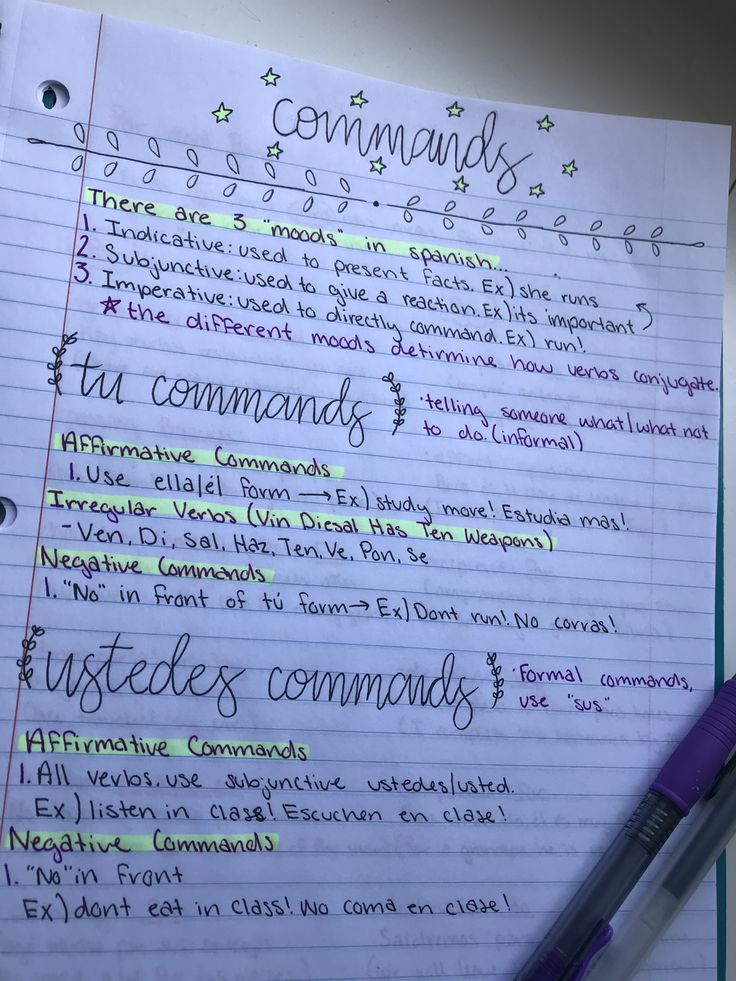 commands
There are 3 "moods" in spanish...
1. Indicative: used to present facts. Ex) she runs
2. Subjunctive: used to give a reaction. Ex) its important
3. Imperative: used to directly command. Ex) run!
the different moods detirmine how verbs conjugate.
tu commands
·telling someone what/what not
to do. (informal)
Affirmative Commands
1. Use ella/él form → Ex) study more! Estudia mas!
Irregular Verbs (Vin Diesal Has Ten Weapons)
- Ven, Di, Sal, Haz, Ten, Ve, Pon, Se
Negative Commands
1. "No" in front of tú form → Ex) Dont run! No corras!
ustedes commands
·Formal commands,
use "sus"
Affirmative Commands
1. All verbs, use subjunctive ustedes/usted.
Ex) listen in class! Escuchen en clase!
Negative Commands
1. "No" in front
Ex) dont eat in class! No coma en clase!